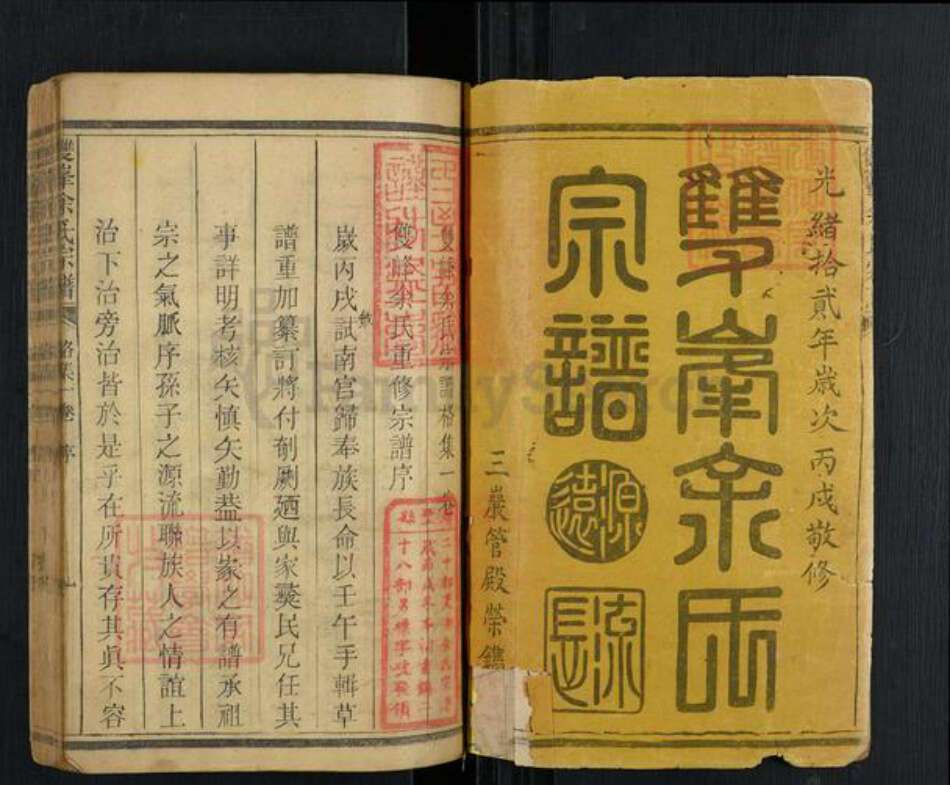 光緒拾貳年歲次丙戌敬修
雙峯余氏
宗譜
源遠
流長
三巖管殿榮鐫
雙峰余氏宗譜格集一卷
雙峰余氏重修宗譜序
歲丙戌試南宮歸奉族長命以壬午手輯草
譜重加纂訂將付剞劂廼與家爕民兄任其
事詳明考核矢慎矢勤葢以家之有譜承祖
宗之氣脈序孫子之源流聯族人之情誼上
治下治旁治皆於是乎在所貴存其眞不容
雙峯余氏宗譜
格集一卷
序